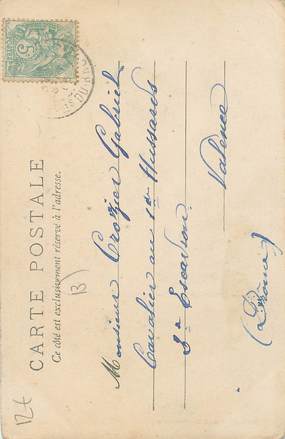 CARTE POSTALE
Ce côté est exclusivement réservé à l'adresse.
Monsieur Crozier Gabriel
Cavalier au 1er Hussards
3e Escadron
Valence
(Drôme)
13
12€